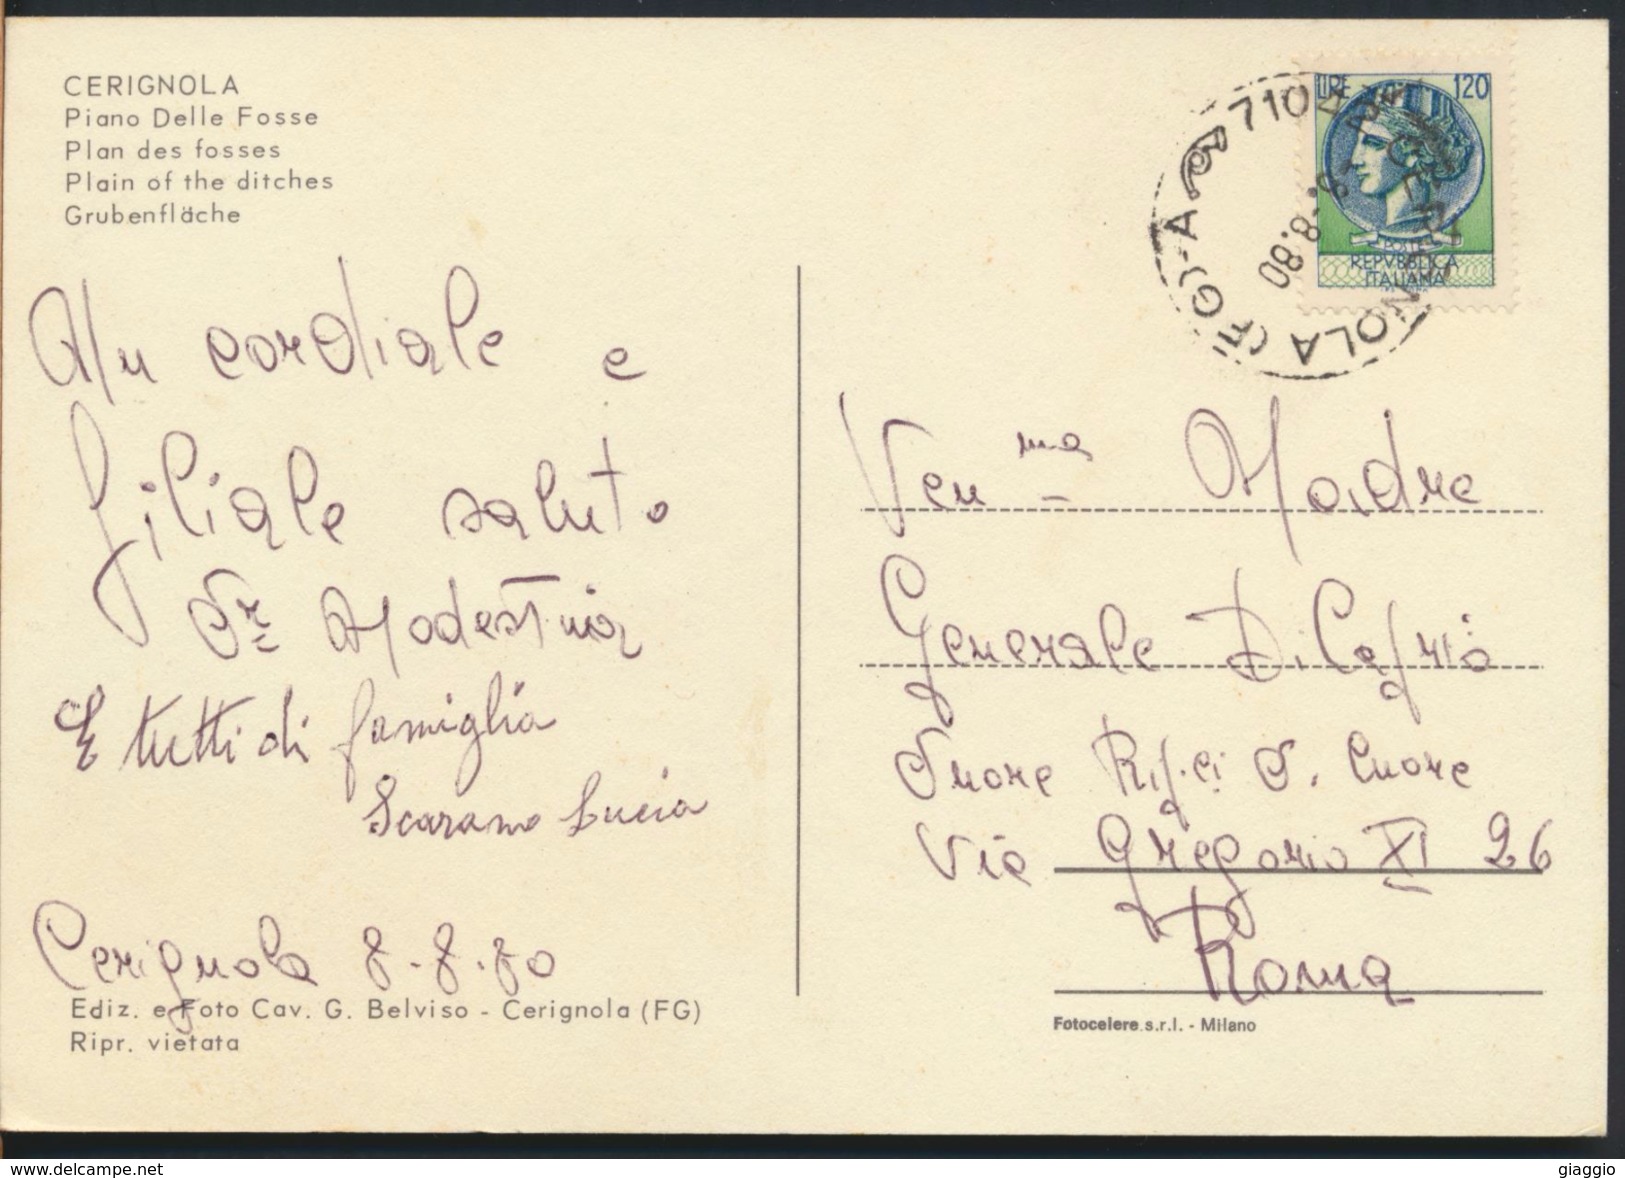 CERIGNOLA
Piano Delle Fosse
Plan des fosses
Plain of the ditches
Grubenfläche
LIRE 120
POSTE
REPVBBLICA
ITALIANA
71042 CERIGNOLA (FG)-A
8.80
Un cordiale e
filiale saluto
Sr Modestina
E tutti di famiglia
Scarano Lucia
Cerignola 8.8.80
Ven ma Madre
Generale Di Cafrio
Suore Rip.ci S. Cuore
Via Gregorio XI 26
Roma
Ediz. e Foto Cav. G. Belviso - Cerignola (FG)
Ripr. vietata
Fotocelere s.r.l. - Milano
www.delcampe.net
giaggio